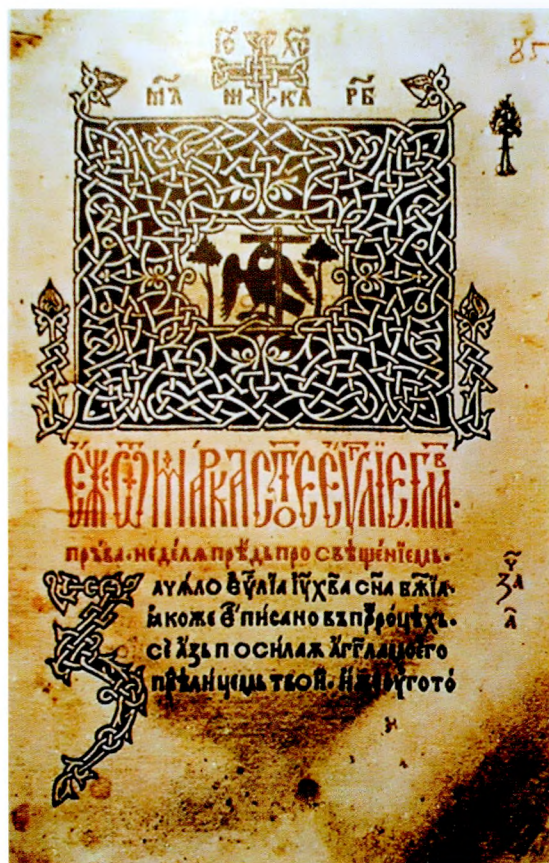 І҃С Х҃С
НИ КА
85
Е҆́ЖЕ Ѿ МА́РКА СТ҃ОЕ Е҆Ѵ҃ЛІЕ ГЛ҃А В҃.
пръва. недѣлѧ прѣдь просвѣщенїемь.
Зачѧло еѵ҃лїа і҆ѵ҃ х҃ва сн҃а бж҃їа.
ꙗ҆коже е҆́ писано въ пррⷪ҇цѣхъ.
се а҆́зь посилаѫ а҆́гг҃ла моего
прѣд лицемь твои.